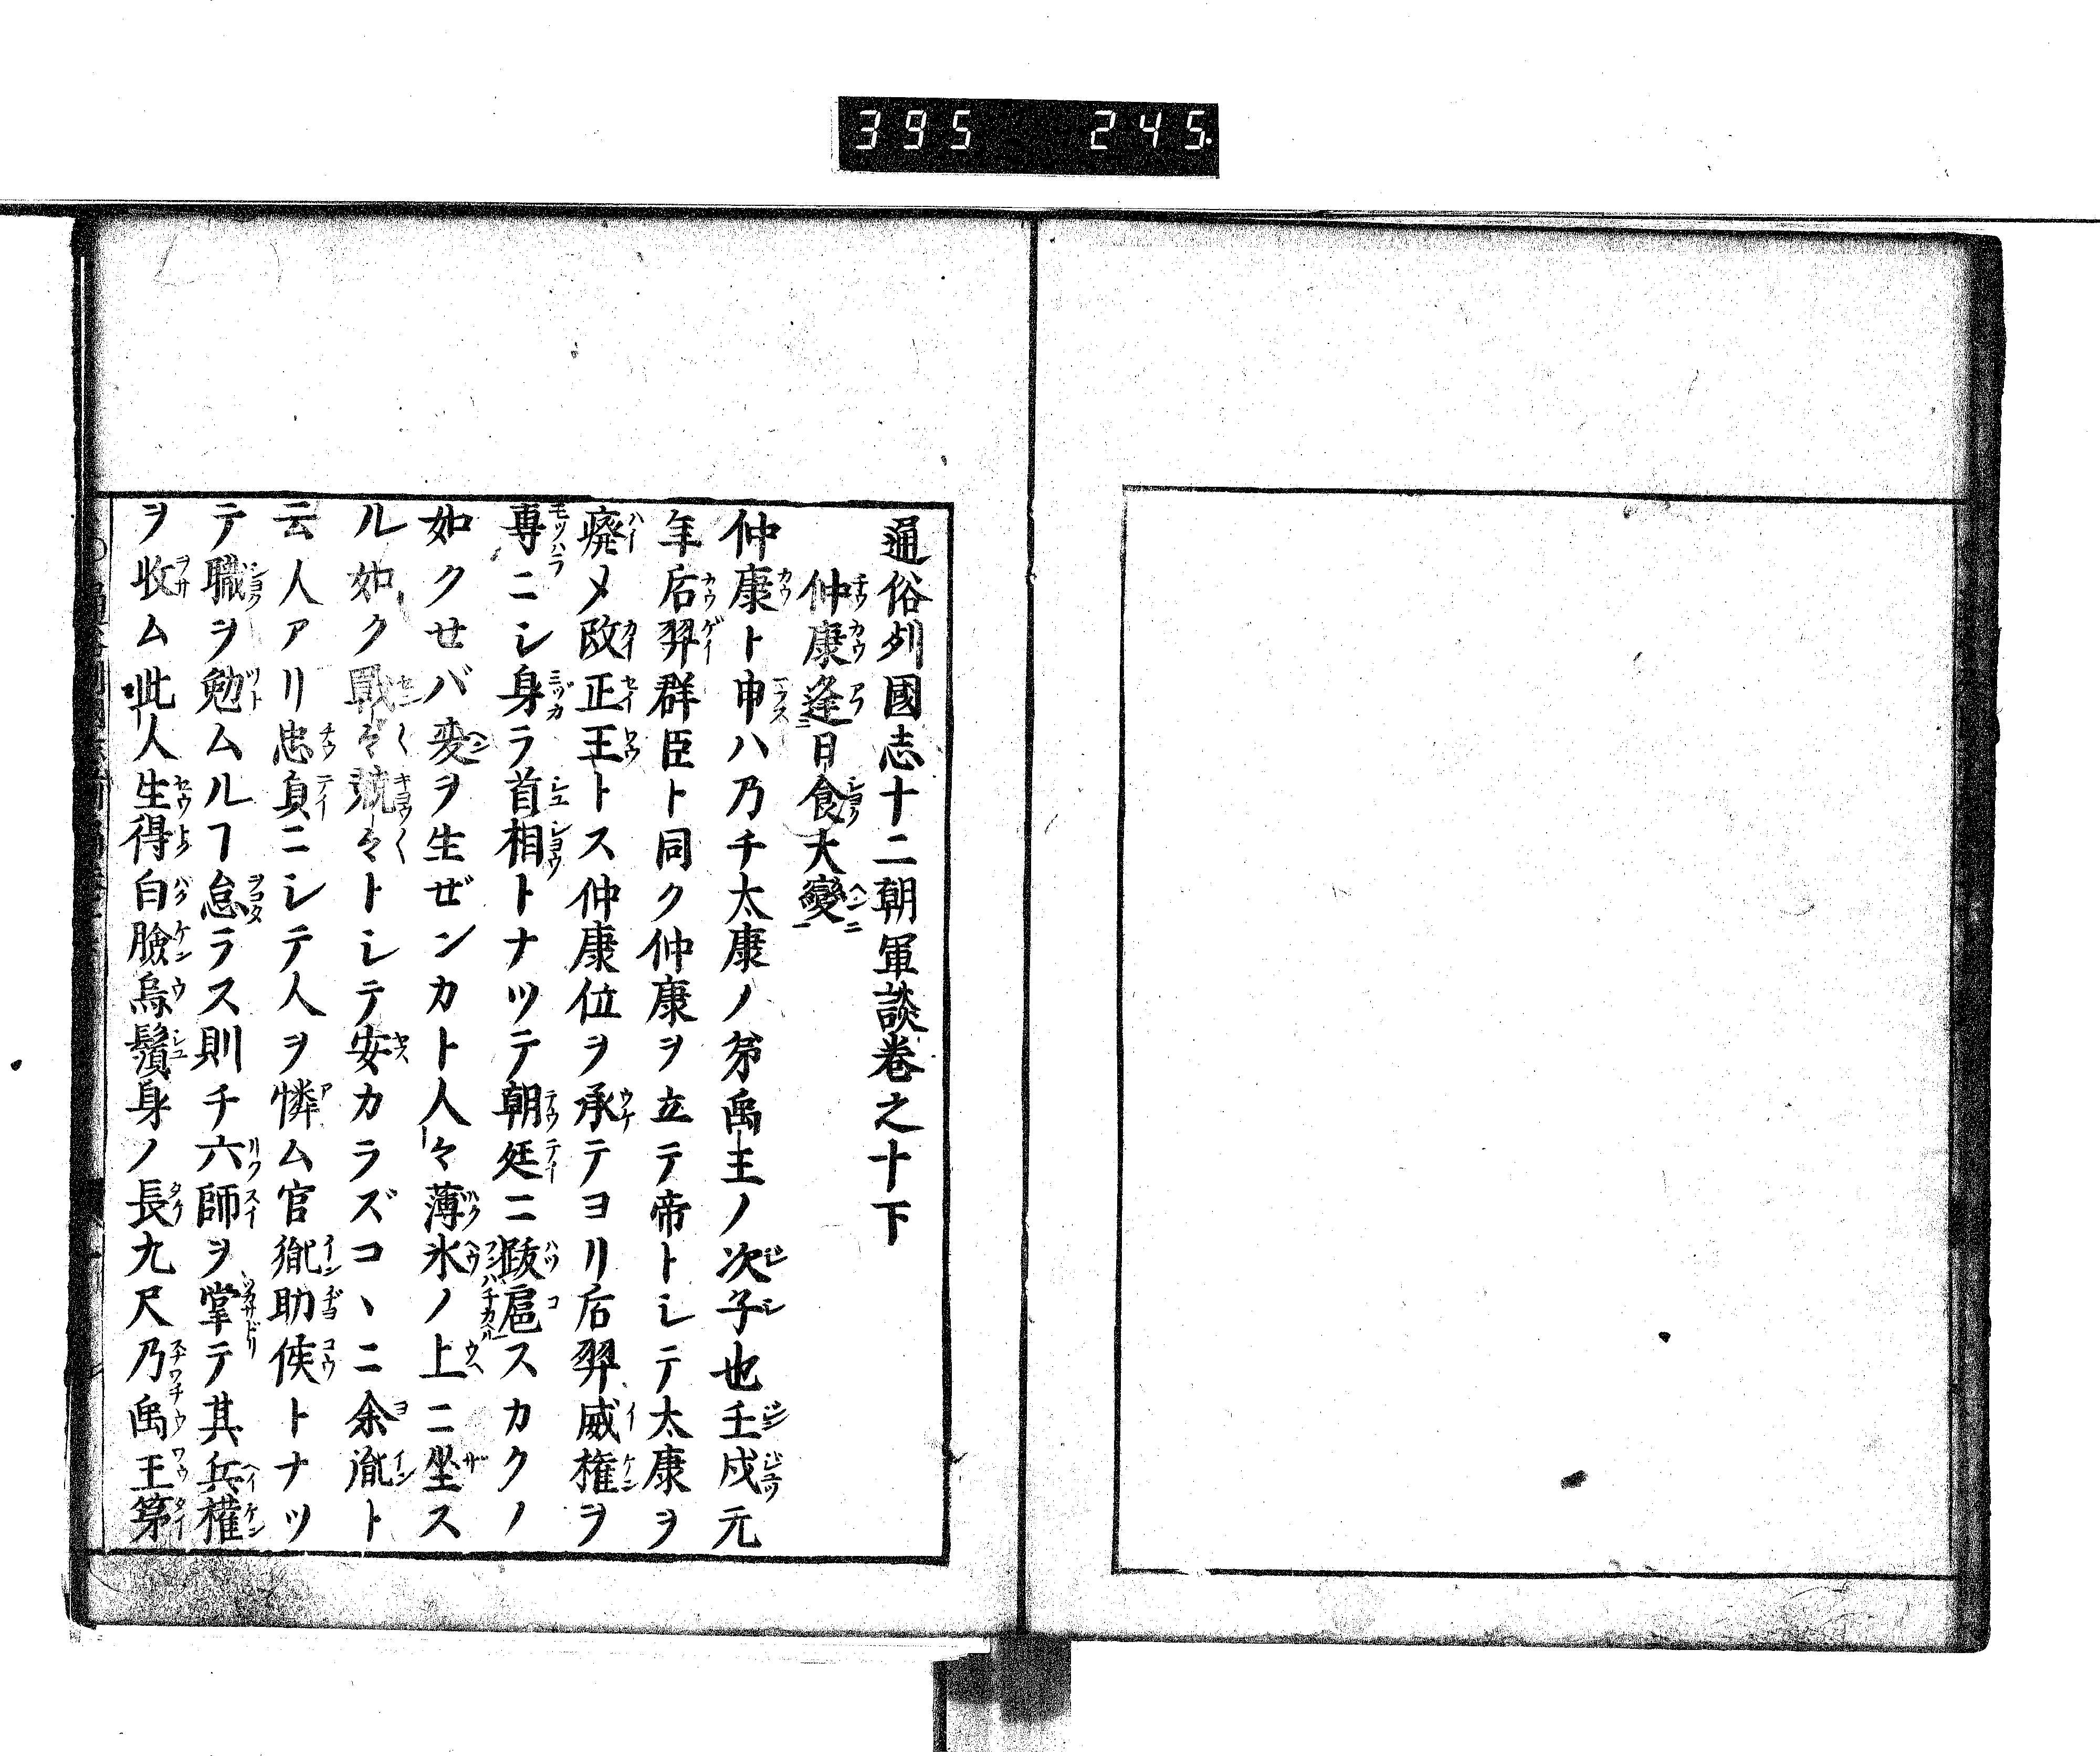 395 245.
通俗列國志十二朝軍談巻之十下
仲康逢日食大變
仲康ト申ハ乃チ太康ノ弟禹王ノ次子也壬戌元
年后羿群臣ト同ク仲康ヲ立テ帝トシテ太康ヲ
廃メ改正王トス仲康位ヲ承テヨリ后羿威権ヲ
専ニシ身ラ首相トナツテ朝廷ニ跋扈スカクノ
如クせバ変ヲ生ぜンカト人々薄氷ノ上ニ坐ス
ル如ク戰々兢々トシテ安カラズコヽニ余胤ト
云人アリ忠貞ニシテ人ヲ憐ム官胤助侯トナツ
テ職ヲ勉ムルヿ怠ラス則チ六師ヲ掌テ其兵權
ヲ收ム此人生得白臉烏鬚身ノ長九尺乃禹王第